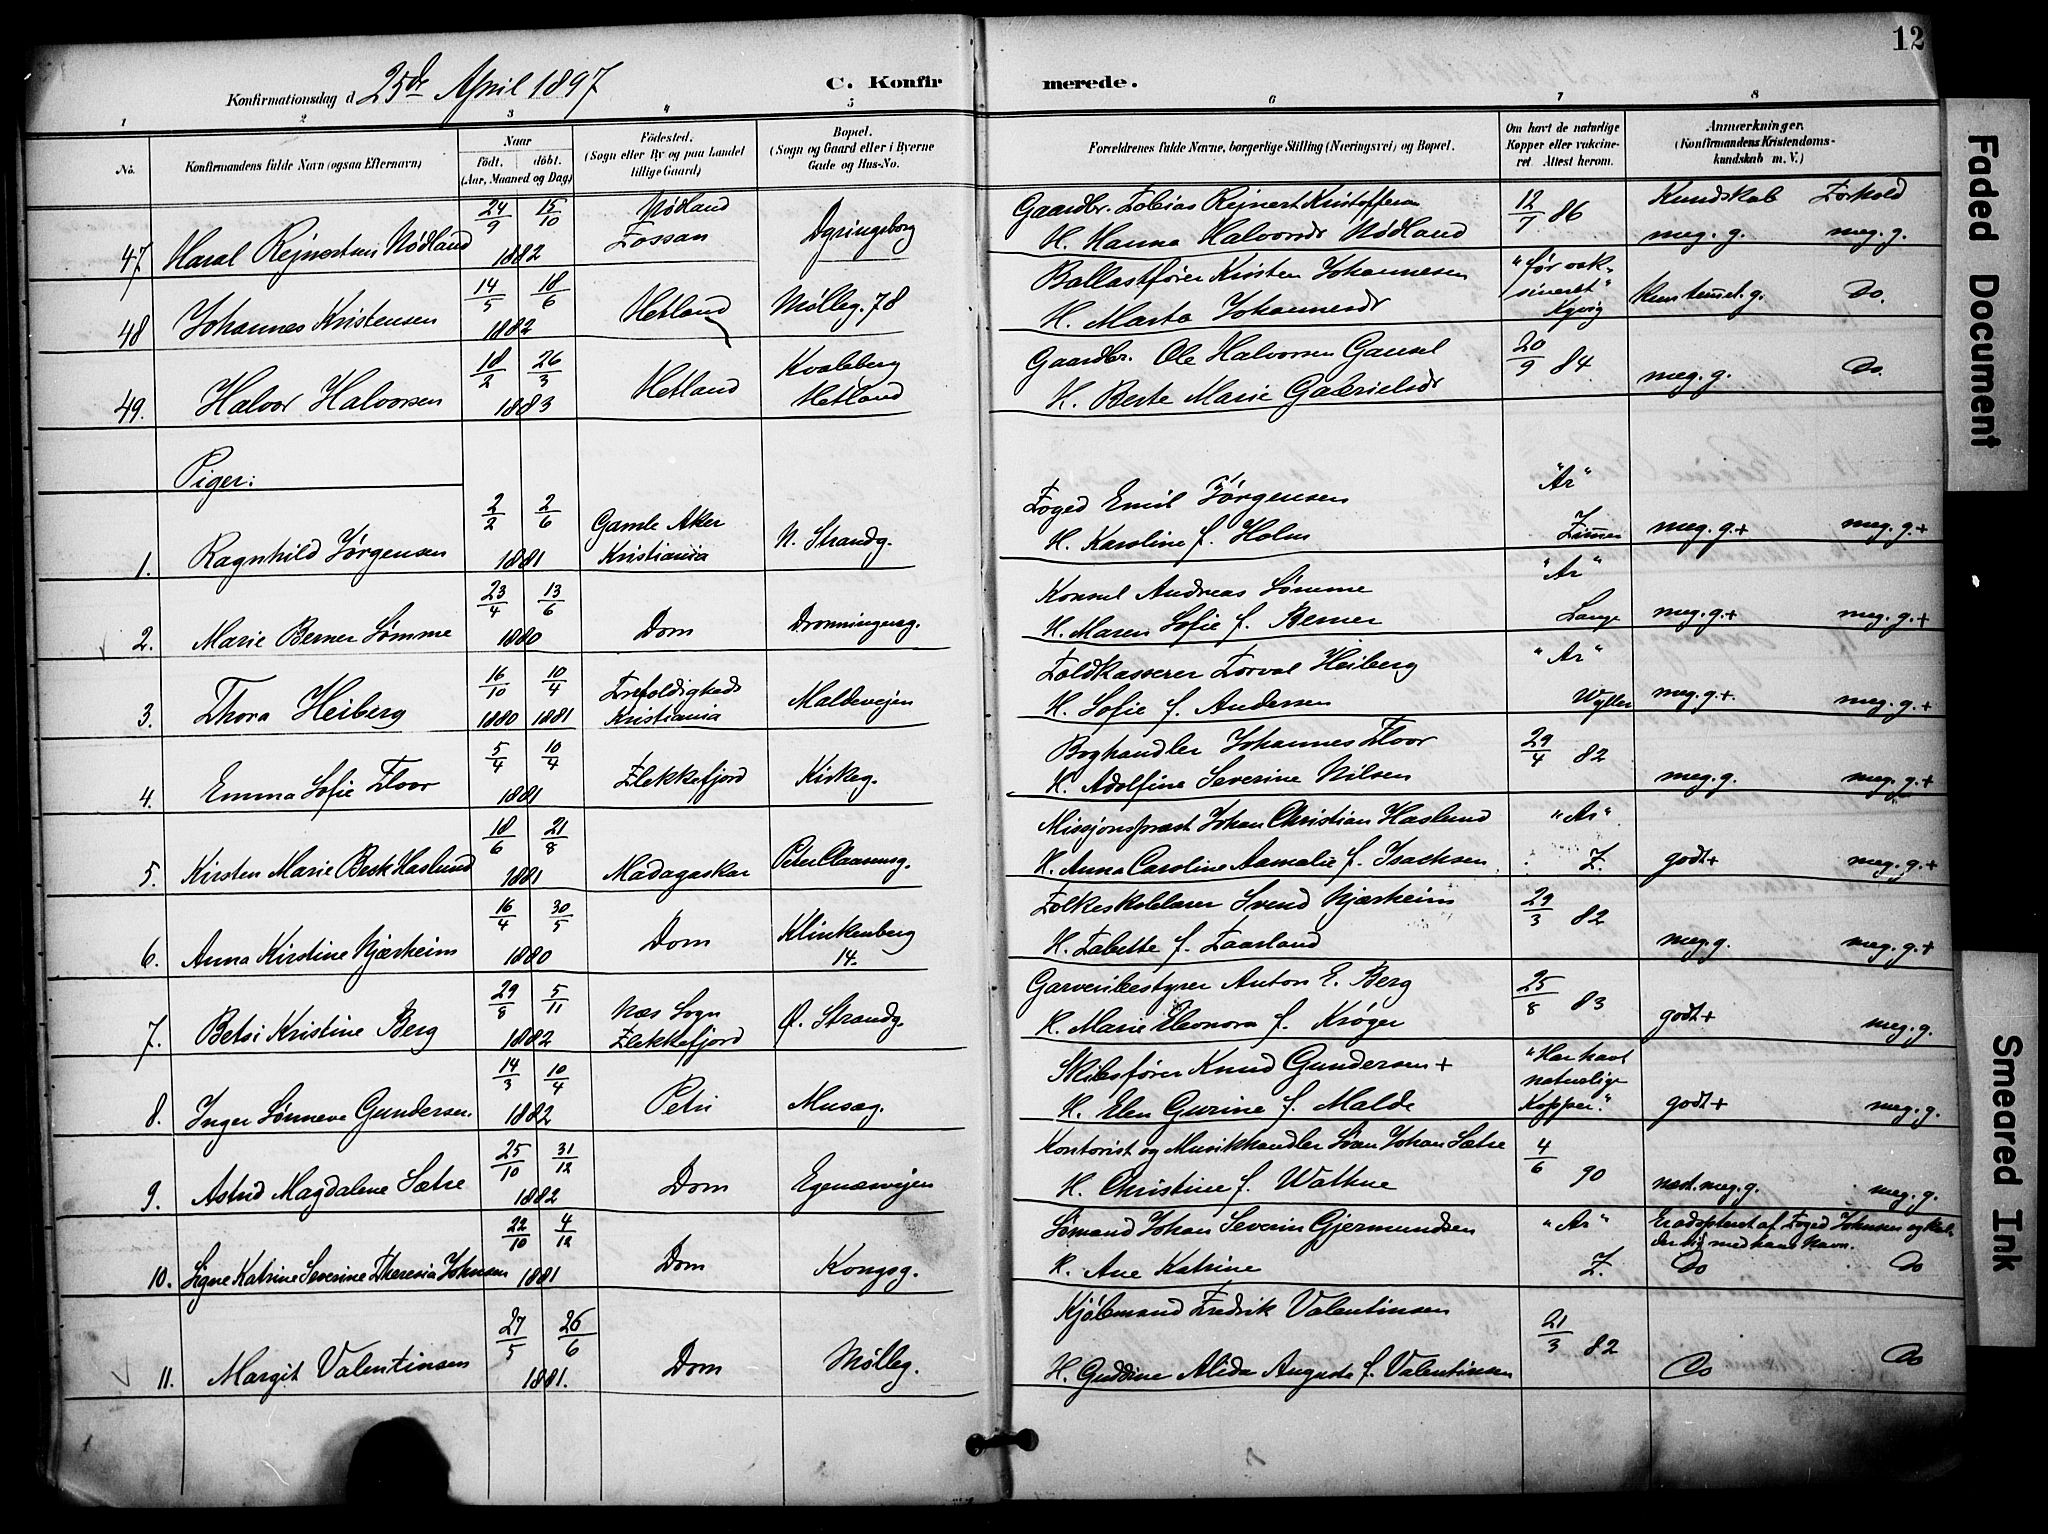 12
Konfirmationsdag d 25de April 1897
C. Konfirmerede.
1 2 3 4 5 6 7 8
No.
Konfirmandens fulde Navn (ogsaa Efternavn)
Naar
født. døbt.
(Aar, Maaned og Dag)
Fødested.
(Sogn eller By og paa Landet
tillige Gaard)
Bopæl.
(Sogn og Gaard eller i Byerne
Gade og Hus-No.
Forældrenes fulde Navne, borgerlige Stilling (Næringsvei) og Bopæl.
Om havt de naturlige
Kopper eller vakcine-
ret Attest herom.
Anmærkninger.
(Konfirmandens Kristendoms-
kundskab m. V.)
Kundskab Forhold
47. Haral Rejnertsen Nødland 24/9 15/10 1882 Nødland Fossan Dyringsborg
Gaardbr. Tobias Rejnert Kristoffersen
H. Hanna Halvorsdr Nødland
12/7 86 meg. g. meg. g.
48 Johannes Kristensen 14/5 18/6 1882 Hetland Mølleg. 78
Ballastfører Kristen Johannesen
H. Marta Johannesdr
"før vak-
sineret"
Kyvig
temmel. g. Do.
49. Halvor Halvorsen 18/2 26/3 1883 Hetland Kvaleberg Hetland
Gaardbr. Ole Halvorsen Gausel
H. Berte Marie Gabrielsdr
20/9 84 meg. g. Do.
Piger:
1. Ragnhild Jørgensen 2/2 2/6 1881 Gamle Aker Kristiania N. Strandg.
Foged Emil Jørgensen
H. Karoline f. Holm
"Ar" Zimmer meg. g.+ meg. g.+
2. Marie Berner Sømme 23/4 13/6 1880 Dom Dronningensg.
Konsul Andreas Sømme
H. Maren Sofie f. Berner
"Ar" Lange meg. g.+ meg. g.+
3. Thora Heiberg 16/10 1880 10/4 1881 Trefoldigheds Kristiania Maldevejen
Toldkasserer Torval Heiberg
H. Sofie f. Andersen
"Ar" Wyller meg. g.+. meg. g.+
4. Emma Sofie Floor 5/4 10/4 1881 Flekkefjord Kirkeg.
Boghandler Johannes Floor
H. Adolfine Severine Nilsen
29/4 82 meg. g. meg. g.+
5. Kirsten Marie Beck Haslund 18/6 21/8 1881 Madagaskar Peter Claasensg.
Missjonspræst Johan Christian Haslund
H. Anna Caroline Aamalie f. Isachsen
"Ar" Z. godt+ meg. g.+
6. Anna Kirstine Njærheim 16/4 30/5 1880 Dom Klinkenberg 14.
Folkeskolelærer Svend Njærheim
H. Tabette f. Taarland
29/3 82 meg. g. meg. g.+
7. Betsi Kristine Berg 29/8 5/11 1882 Næs Sogn Flekkefjord Ø. Strandg.
Garveribestyrer Anton E. Berg
H. Marie Eleonora f. Krøger
25/8 83 godt+ meg. g.
8. Inger Sønneve Gundersen. 14/3 10/4 1882 Petri Musæg.
Skibsfører Knud Gundersen +
H. Elen Gurine f. Malde
"Har havt
naturlige
Kopper." godt+ meg. g.
9. Astrid Magdalene Sætre 25/10 31/12 1882 Dom Egenæsvejen
Kontorist og Musikhandler Sivan Johan Sætre
H. Christine f. Wathne
4/6 90 næst. meg. g. meg. g.
10. Signe Katrine Severine Theresia Johnsen 22/10 4/12 1881 Dom Kongsg.
Sømand Johan Severin Gjermundsen
H. Ane Katrine
"Ar" Z.
Er adopteret af Foged Johnsen og kal-
der sig med hans Navn.
Do Do
11. Margit Valentinsen 27/5 26/6 1881. Dom Mølleg.
Kjøbmand Fredrik Valentinsen
H. Guddine Alida Auguste f. Valentinsen
21/3 82 Do Do
Faded Document
Smeared Ink